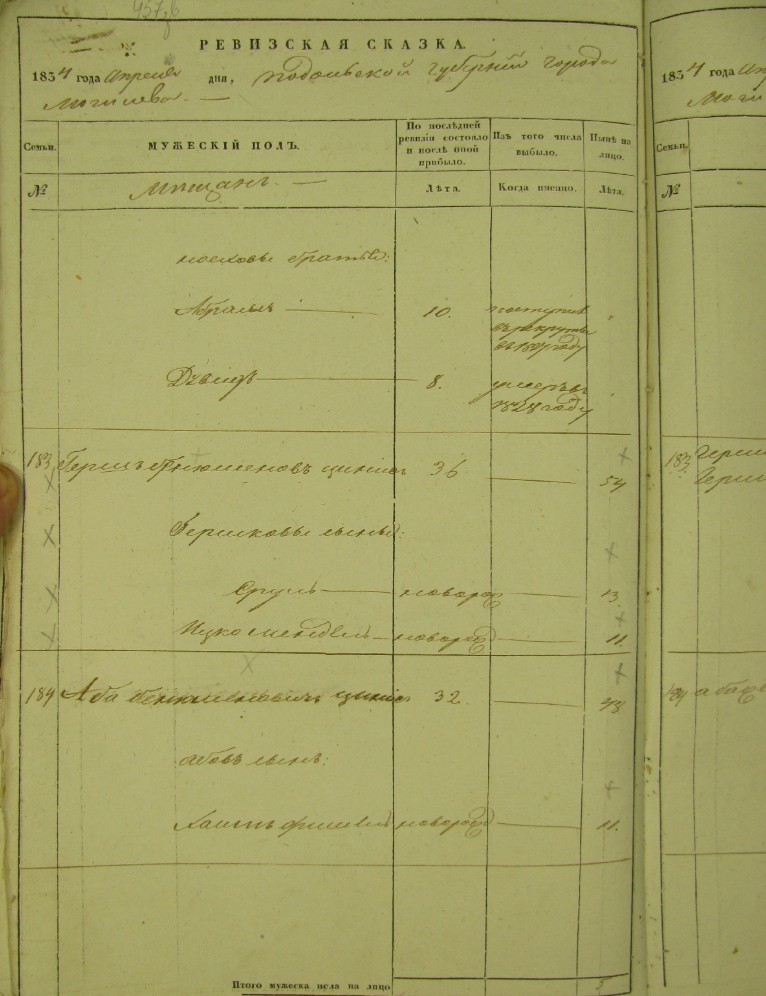 457,6
РЕВИЗСКАЯ СКАЗКА.
1834 года Апреля дня, Подольской Губернии города
Могилева
Семьи. МУЖЕСКІЙ ПОЛЪ. По последней ревизіи состояло и послѣ оной прибыло. Изъ того числа выбыло. Нынѣ на лицо.
№ Мещанъ. Лѣта. Когда именно. Лѣта.
братья:
Абрамъ 10. поступилъ
въ рекруты
году
Дувидъ 8. умеръ въ
1828 году
183 Герш 36 54
Гершковы сыновья:
Сруль новорож 13.
Ицко Мендель новорож 11.
184 Аба 32
Абовъ сынъ:
Хаимъ Фишель новорож 11.
Итого мужеска пола на лицо 5
1834 года Ап
Моги
Семьи.
№
183 Герш
Герш
184 Аба